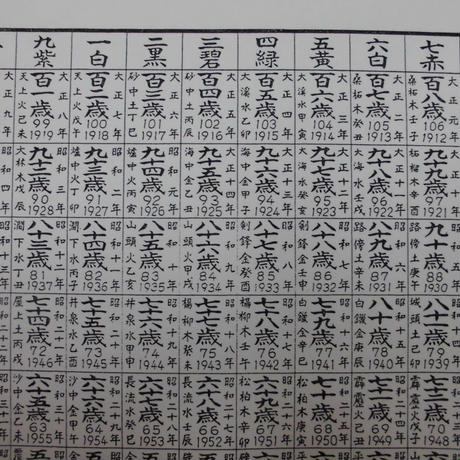 七赤
六白
五黄
四緑
三碧
二黒
一白
九紫
大正元年
百八歳
106
1912
桑柘木壬子
大正二年
百七歳
105
1913
桑柘木癸丑
大正三年
百六歳
104
1914
大溪水甲寅
大正四年
百五歳
103
1915
大溪水乙卯
大正五年
百四歳
102
1916
砂中土丙辰
大正六年
百三歳
101
1917
砂中土丁巳
大正七年
百二歳
100
1918
天上火戊午
大正八年
百一歳
99
1919
天上火己未
大正十年
九十九歳
97
1921
柘榴木辛酉
大正十一年
九十八歳
96
1922
大海水壬戌
大正十二年
九十七歳
95
1923
大海水癸亥
大正十三年
九十六歳
94
1924
海中金甲子
大正十四年
九十五歳
93
1925
海中金乙丑
昭和元年
九十四歳
92
1926
爐中火丙寅
昭和二年
九十三歳
91
1927
爐中火丁卯
昭和三年
九十二歳
90
1928
大林木戊辰
昭和四年
昭和五年
九十歳
88
1930
路傍土庚午
昭和六年
八十九歳
87
1931
路傍土辛未
昭和七年
八十八歳
86
1932
剣鋒金壬申
昭和八年
八十七歳
85
1933
剣鋒金癸酉
昭和九年
八十六歳
84
1934
山頭火甲戌
昭和十年
八十五歳
83
1935
山頭火乙亥
昭和十一年
八十四歳
82
1936
澗下水丙子
昭和十二年
八十三歳
81
1937
澗下水丁丑
昭和十三年
昭和十四年
八十一歳
79
1939
城頭土己卯
昭和十五年
八十歳
78
1940
白鑞金庚辰
昭和十六年
七十九歳
77
1941
白鑞金辛巳
昭和十七年
七十八歳
76
1942
楊柳木壬午
昭和十八年
七十七歳
75
1943
楊柳木癸未
昭和十九年
七十六歳
74
1944
井泉水甲申
昭和二十年
七十五歳
73
1945
井泉水乙酉
昭和二十一年
七十四歳
72
1946
屋上土丙戌
昭和二十三年
七十二歳
70
1948
霹靂火戊子
昭和二十四年
七十一歳
69
1949
霹靂火己丑
昭和二十五年
七十歳
68
1950
松柏木庚寅
昭和二十六年
六十九歳
67
1951
松柏木辛卯
昭和二十七年
六十八歳
66
1952
長流水壬辰
昭和二十八年
六十七歳
65
1953
長流水癸巳
昭和二十九年
六十六歳
64
1954
沙中金甲午
昭和三十年
六十五歳
63
1955
沙中金乙未